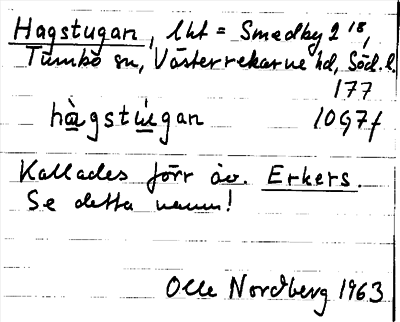 Hagstugan, lht = Smedby 2 18,
Tumbo sn, Västerrekarne hd, Söd. l.
177
hàgstúgan 10G7f
Kallades förr äv. Erkers.
Se detta namn!
Olle Nordberg 1963